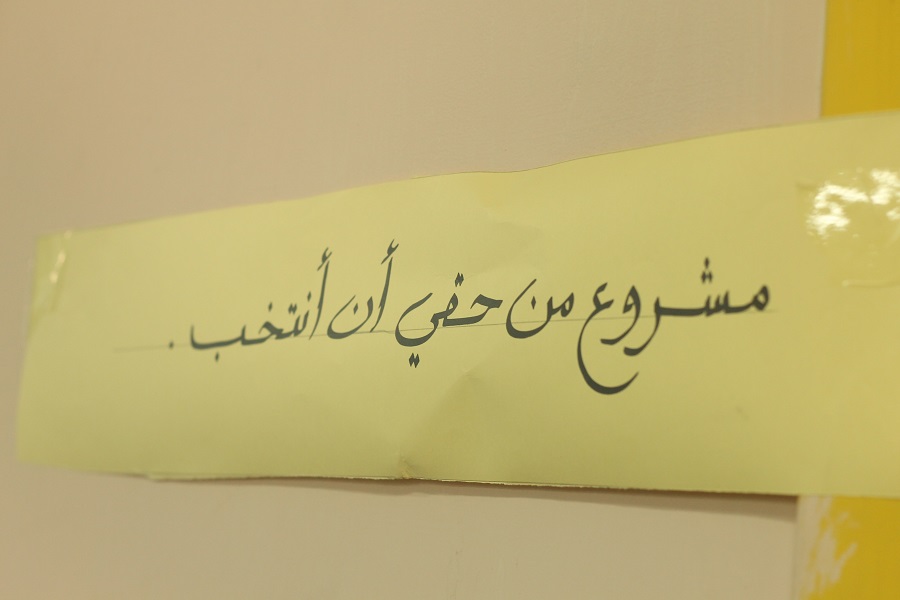 مشروع من حقي أن أنتخب .